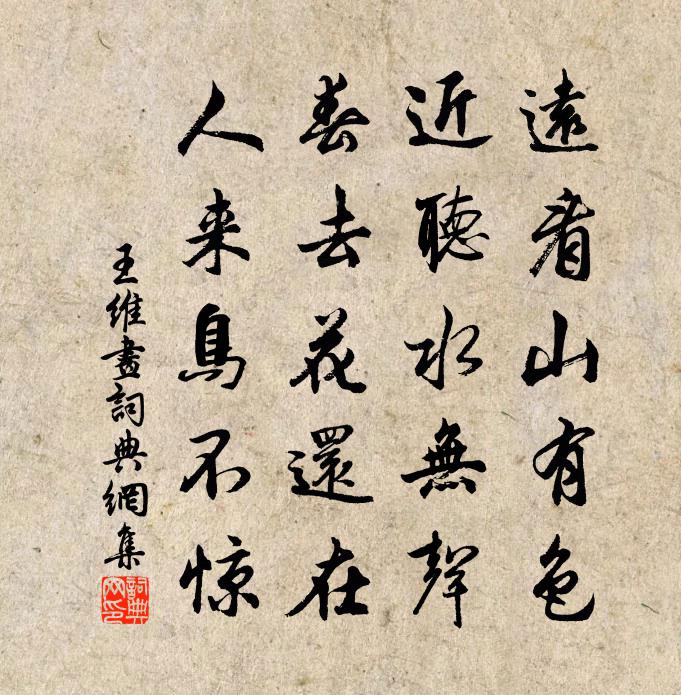 遠看山有色
近聽水無聲
春去花還在
人来鳥不惊
王維畫詞典網集
詞典
网印